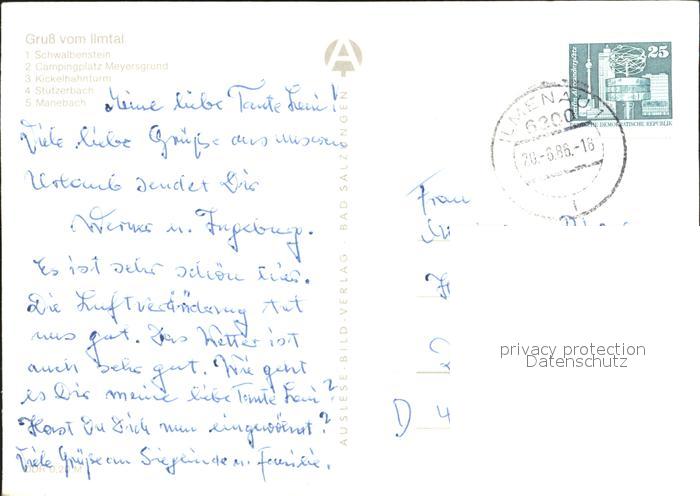 Gruß vom Ilmtal
1 Schwalbenstein
2 Campingplatz Meyersgrund
3 Kickelhahnturm
4 Stützerbach
5 Manebach
Meine liebe Tante Leni!
Viele liebe Grüße aus unserem
Urlaub sendet Dir
Werner u. Ingeburg.
Es ist sehr schön hier.
Die Luftveränderung tut
uns gut. Das Wetter ist
auch sehr gut. Wie geht
es Dir meine liebe Tante Leni?
Hast Du Dich nun eingewöhnt?
Viele Grüße an Sieglinde u. Familie.
AUSLESE-BILD-VERLAG · BAD SALZUNGEN
25
DEMOKRATISCHE REPUBLIK
ILMENAU 1
6300
20.-6.86.-18
Frau
D 4
privacy protection
Datenschutz